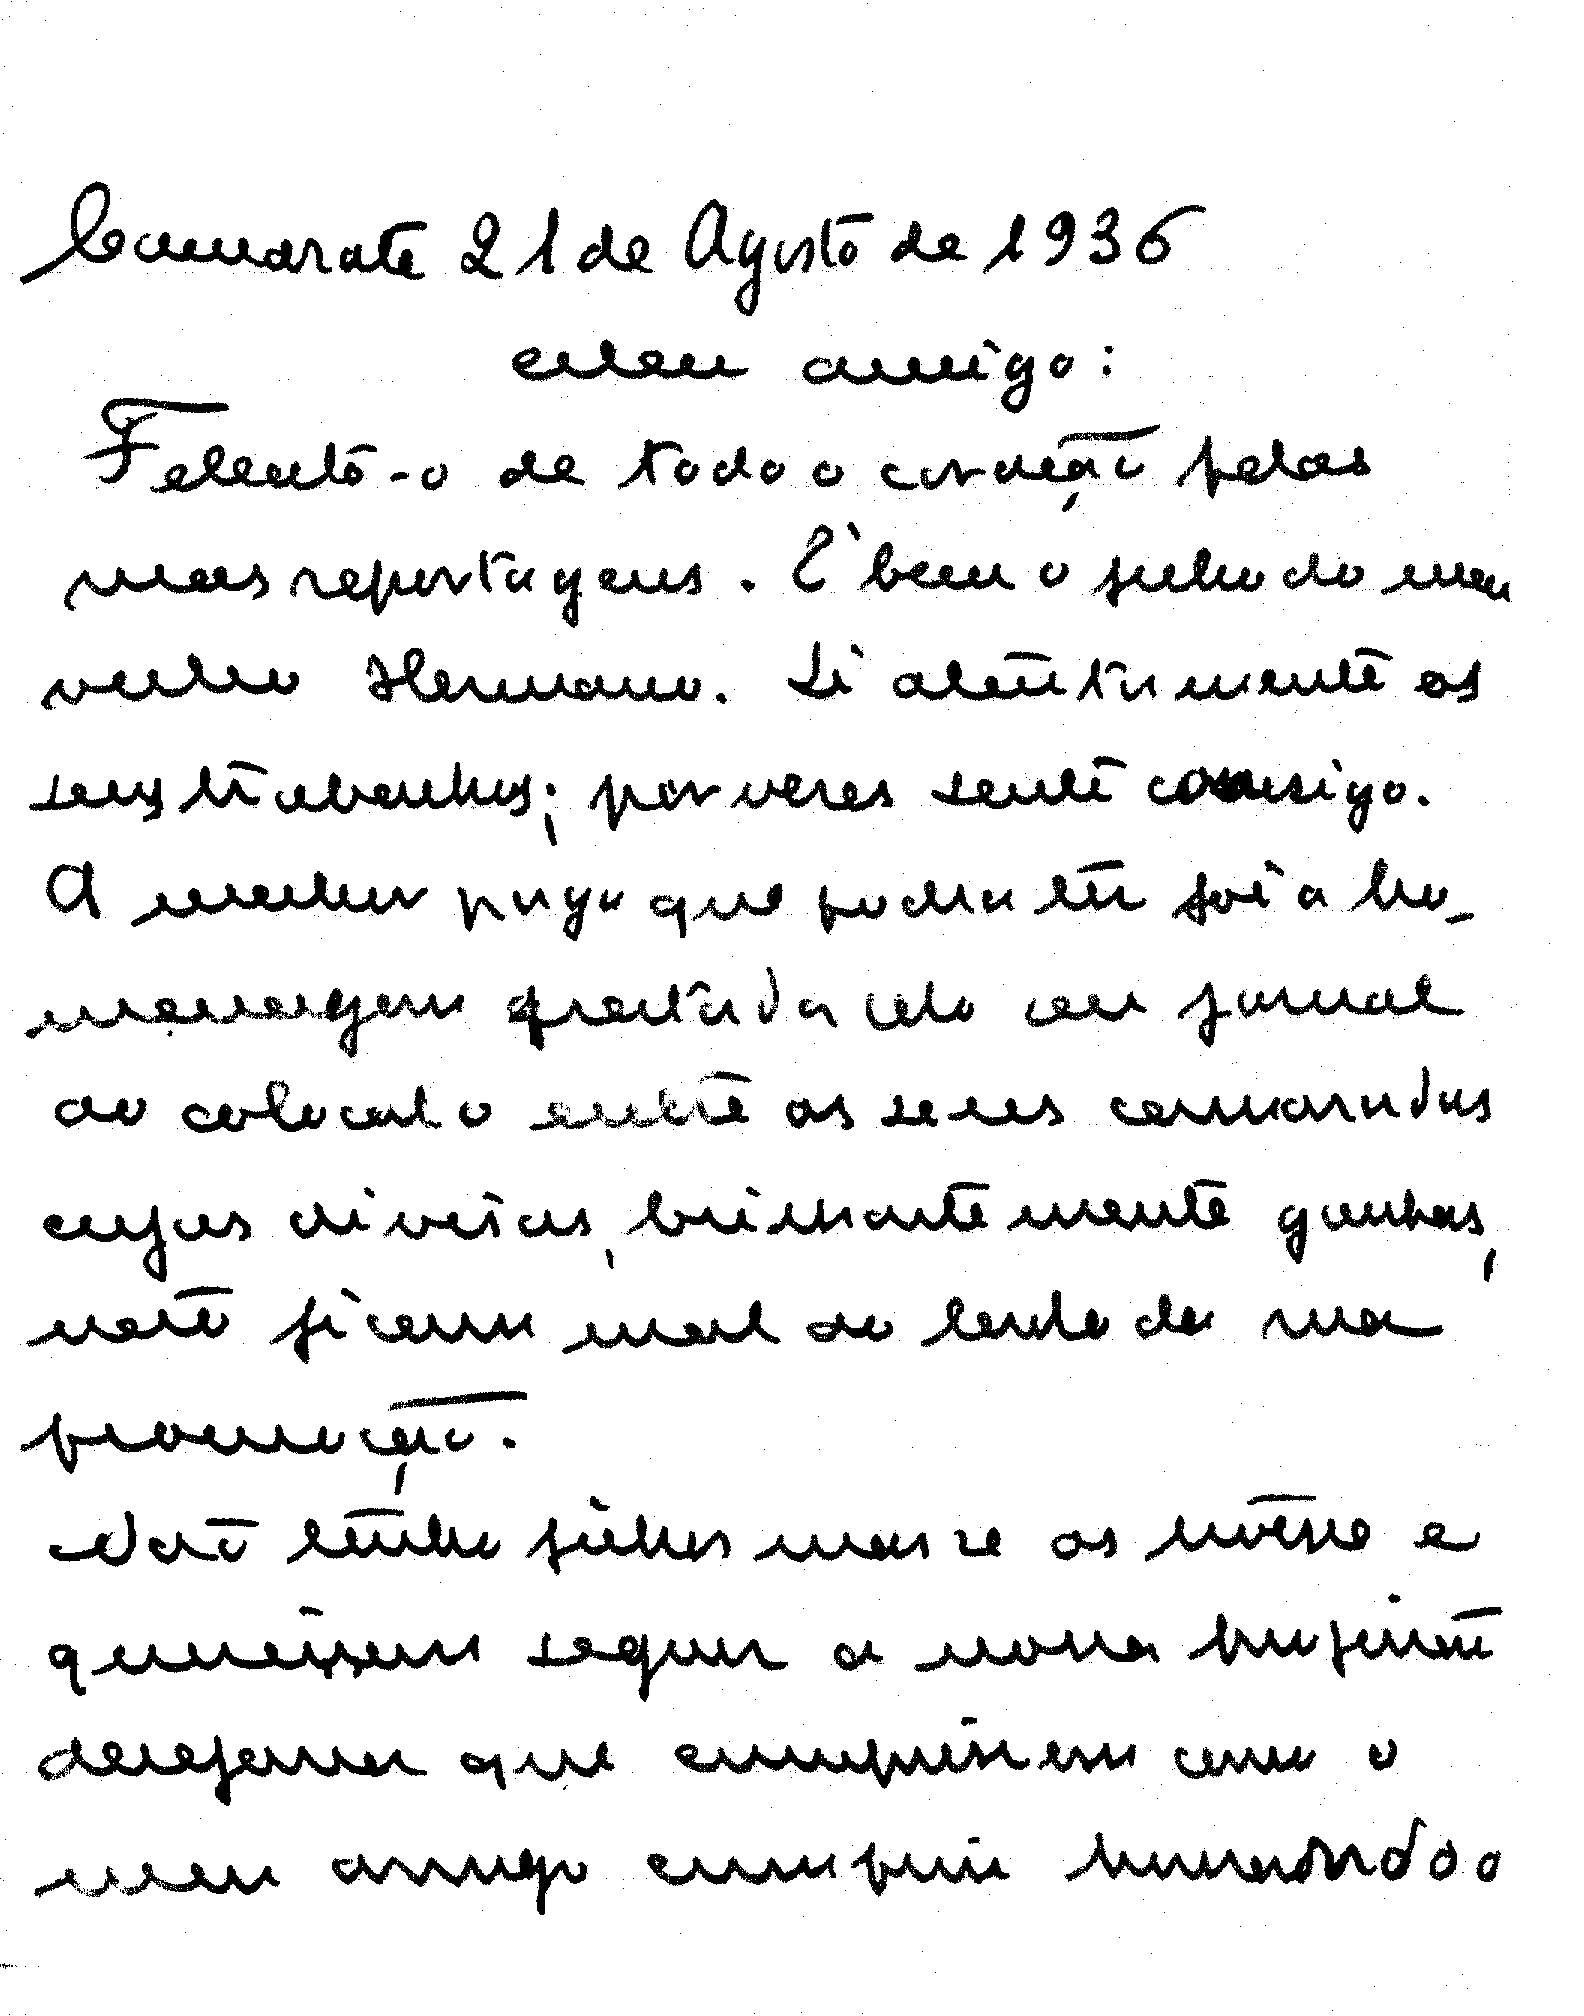 Camarate 21 de Agosto de 1936
Meu amigo:
Felecito-o de todo o coração pelas
suas reportagens. É bem o filho do meu
velho Hermano. Li atentamente os
seus trabanhos; por vezes senti comsigo.
A melhor paga que podia ter foi a ho-
menagem prestada pelo seu jornal
ao colocal o entre os seus camaradas
cujas divisas, brilhantemente ganhas,
não ficam mal ao lado da sua
promoção.
Não tenho filhos mas se os tivesse e
quizessem seguir a nossa profissão
desejava que cumprissem como o
meu amigo cumpriu honrando o